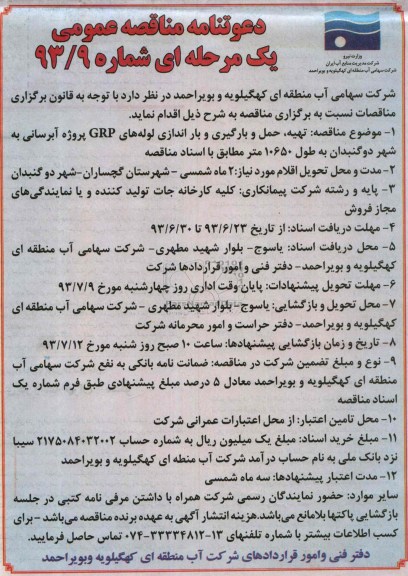 دعوتنامه مناقصه عمومی
یک مرحله ای شماره ۹۳/۹
وزارت نیرو
شرکت مدیریت منابع آب ایران
شرکت سهامی آب منطقه ای کهگیلویه و بویراحمد
شرکت سهامی آب منطقه ای کهگیلویه و بویراحمد در نظر دارد با توجه به قانون برگزاری
مناقصات نسبت به برگزاری مناقصه به شرح ذیل اقدام نماید.
۱- موضوع مناقصه: تهیه، حمل و بارگیری و بار اندازی لوله‌های GRP پروژه آبرسانی به
شهر دوگنبدان به طول ۱۰۶۵۰ متر مطابق با اسناد مناقصه
۲- مدت و محل تحویل اقلام مورد نیاز: ۲ ماه شمسی - شهرستان گچساران-شهر دو گنبدان
۳- پایه و رشته شرکت پیمانکاری: کلیه کارخانه جات تولید کننده و یا نمایندگی‌های
مجاز فروش
۴- مهلت دریافت اسناد: از تاریخ ۹۳/۶/۲۳ تا ۹۳/۶/۳۰
۵- محل دریافت اسناد: یاسوج- بلوار شهید مطهری- شرکت سهامی آب منطقه ای
کهگیلویه و بویراحمد- دفتر فنی و امور قراردادها شرکت
۶- مهلت تحویل پیشنهادات: پایان وقت اداری روز چهارشنبه مورخ ۹۳/۷/۹
۷- محل تحویل و بازگشایی: یاسوج- بلوار شهید مطهری - شرکت سهامی آب منطقه ای
کهگیلویه و بویراحمد- دفتر حراست و امور محرمانه شرکت
۸- تاریخ و زمان بازگشایی پیشنهادها: ساعت ۱۰ صبح روز شنبه مورخ ۹۳/۷/۱۲
۹- نوع و مبلغ تضمین شرکت در مناقصه: ضمانت نامه بانکی به نفع شرکت سهامی آب
منطقه ای کهگیلویه و بویراحمد معادل ۵ درصد مبلغ پیشنهادی طبق فرم شماره یک
اسناد مناقصه
۱۰- محل تامین اعتبار: از محل اعتبارات عمرانی شرکت
۱۱- مبلغ خرید اسناد: مبلغ یک میلیون ریال به شماره حساب ۲۱۷۵۰۸۴۰۳۲۰۰۲ سیبا
نزد بانک ملی به نام حساب درآمد شرکت آب منطه ای کهگیلویه و بویراحمد
۱۲- مدت اعتبار پیشنهادها: سه ماه شمسی
سایر موارد: حضور نمایندگان رسمی شرکت همراه با داشتن معرفی نامه کتبی در جلسه
بازگشایی پاکتها بلامانع می‌باشد. هزینه انتشار آگهی به عهده برنده مناقصه می‌باشد - برای
کسب اطلاعات بیشتر با شماره تلفنهای ۱۳-۳۳۳۳۴۸۱۲-۰۷۴ تماس حاصل فرمایید.
دفتر فنی وامور قراردادهای شرکت آب منطقه ای کهگیلویه وبویراحمد